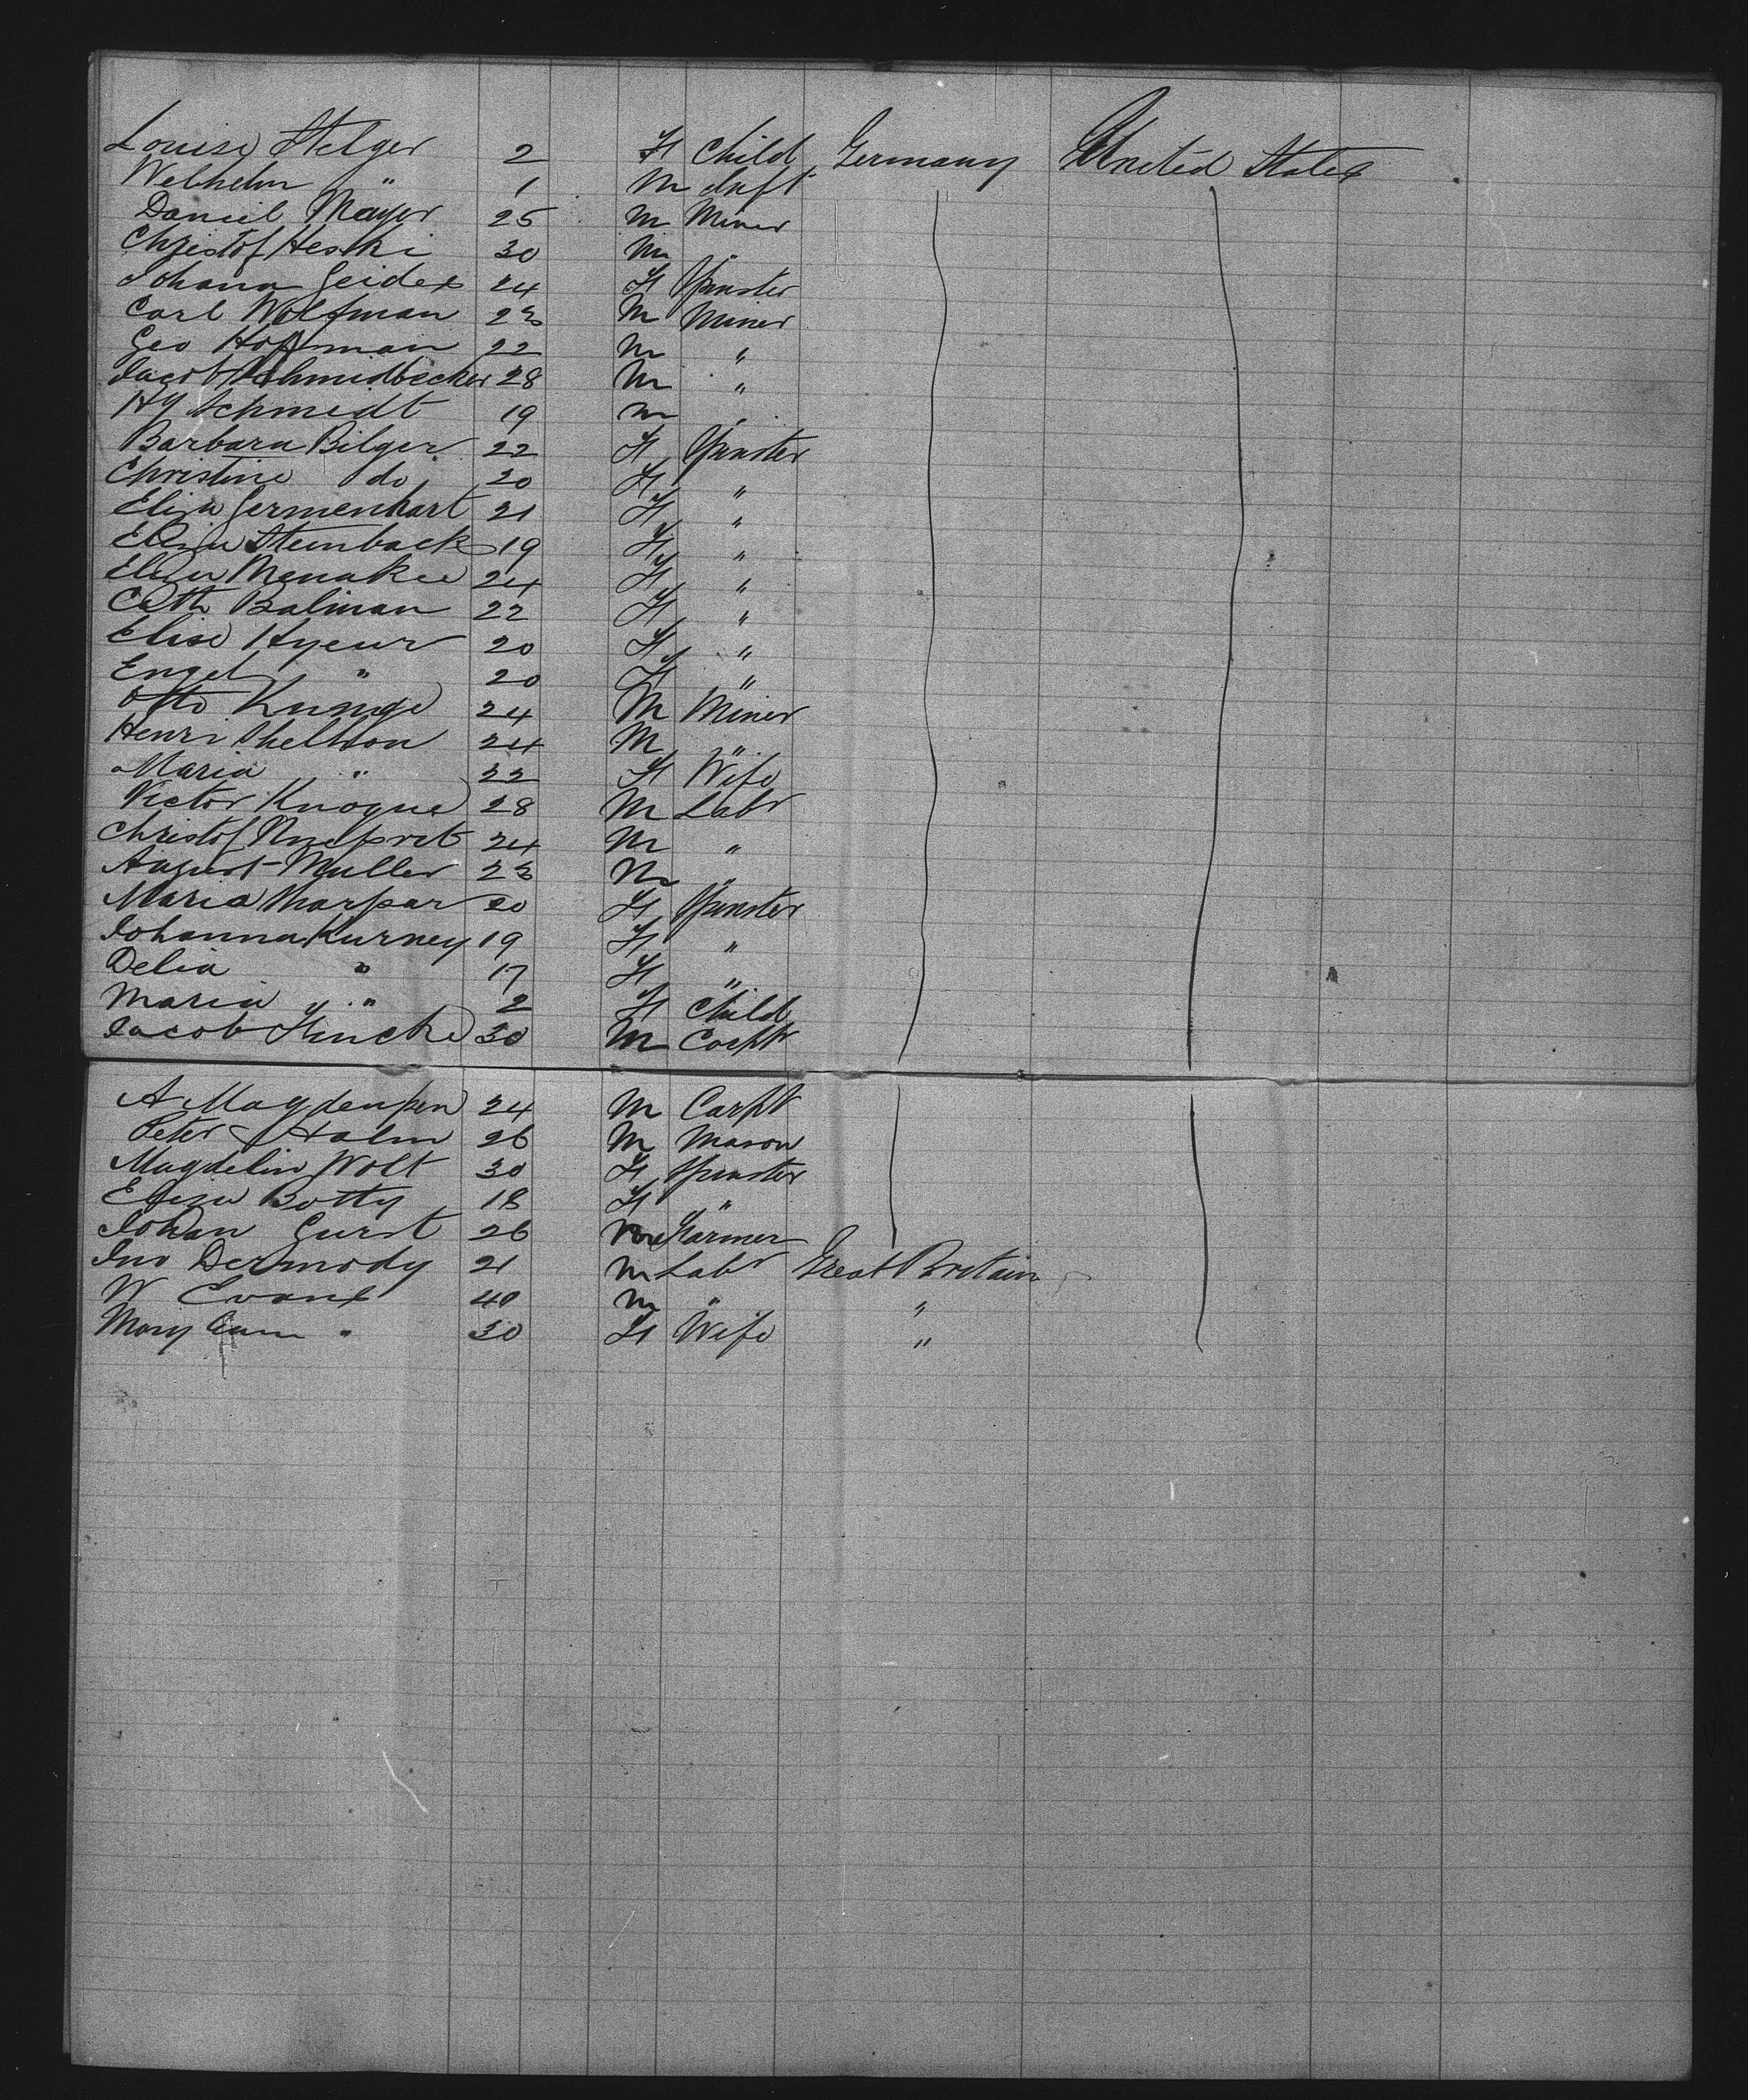 Louise Stelger 2 F Child Germany United States
Welhelm " 1 M Inft
Daniel Mayer 25 M Miner
Christof Heski 30 M "
Johana Geides 24 F Spinster
Carl Wolfman 23 M Miner
Geo Hoffman 22 M "
Jacob Schmidbecker 28 M "
Hy Schmedt 19 M "
Barbara Bilger 22 F Spinster
Christine do 20 F "
Eliza Germenhart 21 F "
Eliza Steinback 19 F "
Eliza 24 F "
Cath Balman 22 F "
Elise Hyeur 20 F "
Engel " 20 F "
Otto Kunge 24 M Miner
Henri Shelhon 24 M "
Maria " 22 F Wife
Victor Knogue 28 M Labr
Christof 24 M "
August Muller 23 M "
Maria Marpar 20 F Spinster
Johanna Kurney 19 F "
Delia " 17 F "
Maria " 2 F Child
Jacob 30 M Carptr
A Magdenpen 24 M Carptr
Peter Halm 26 M Mason
Magdelin Wolt 30 F Spinster
Eliza Botty 18 F "
Johan Gurst 26 M Farmer
Jno Dermody 21 M Labr Great Britain
W Evans 40 M " "
Mary Ann " 30 F Wife "